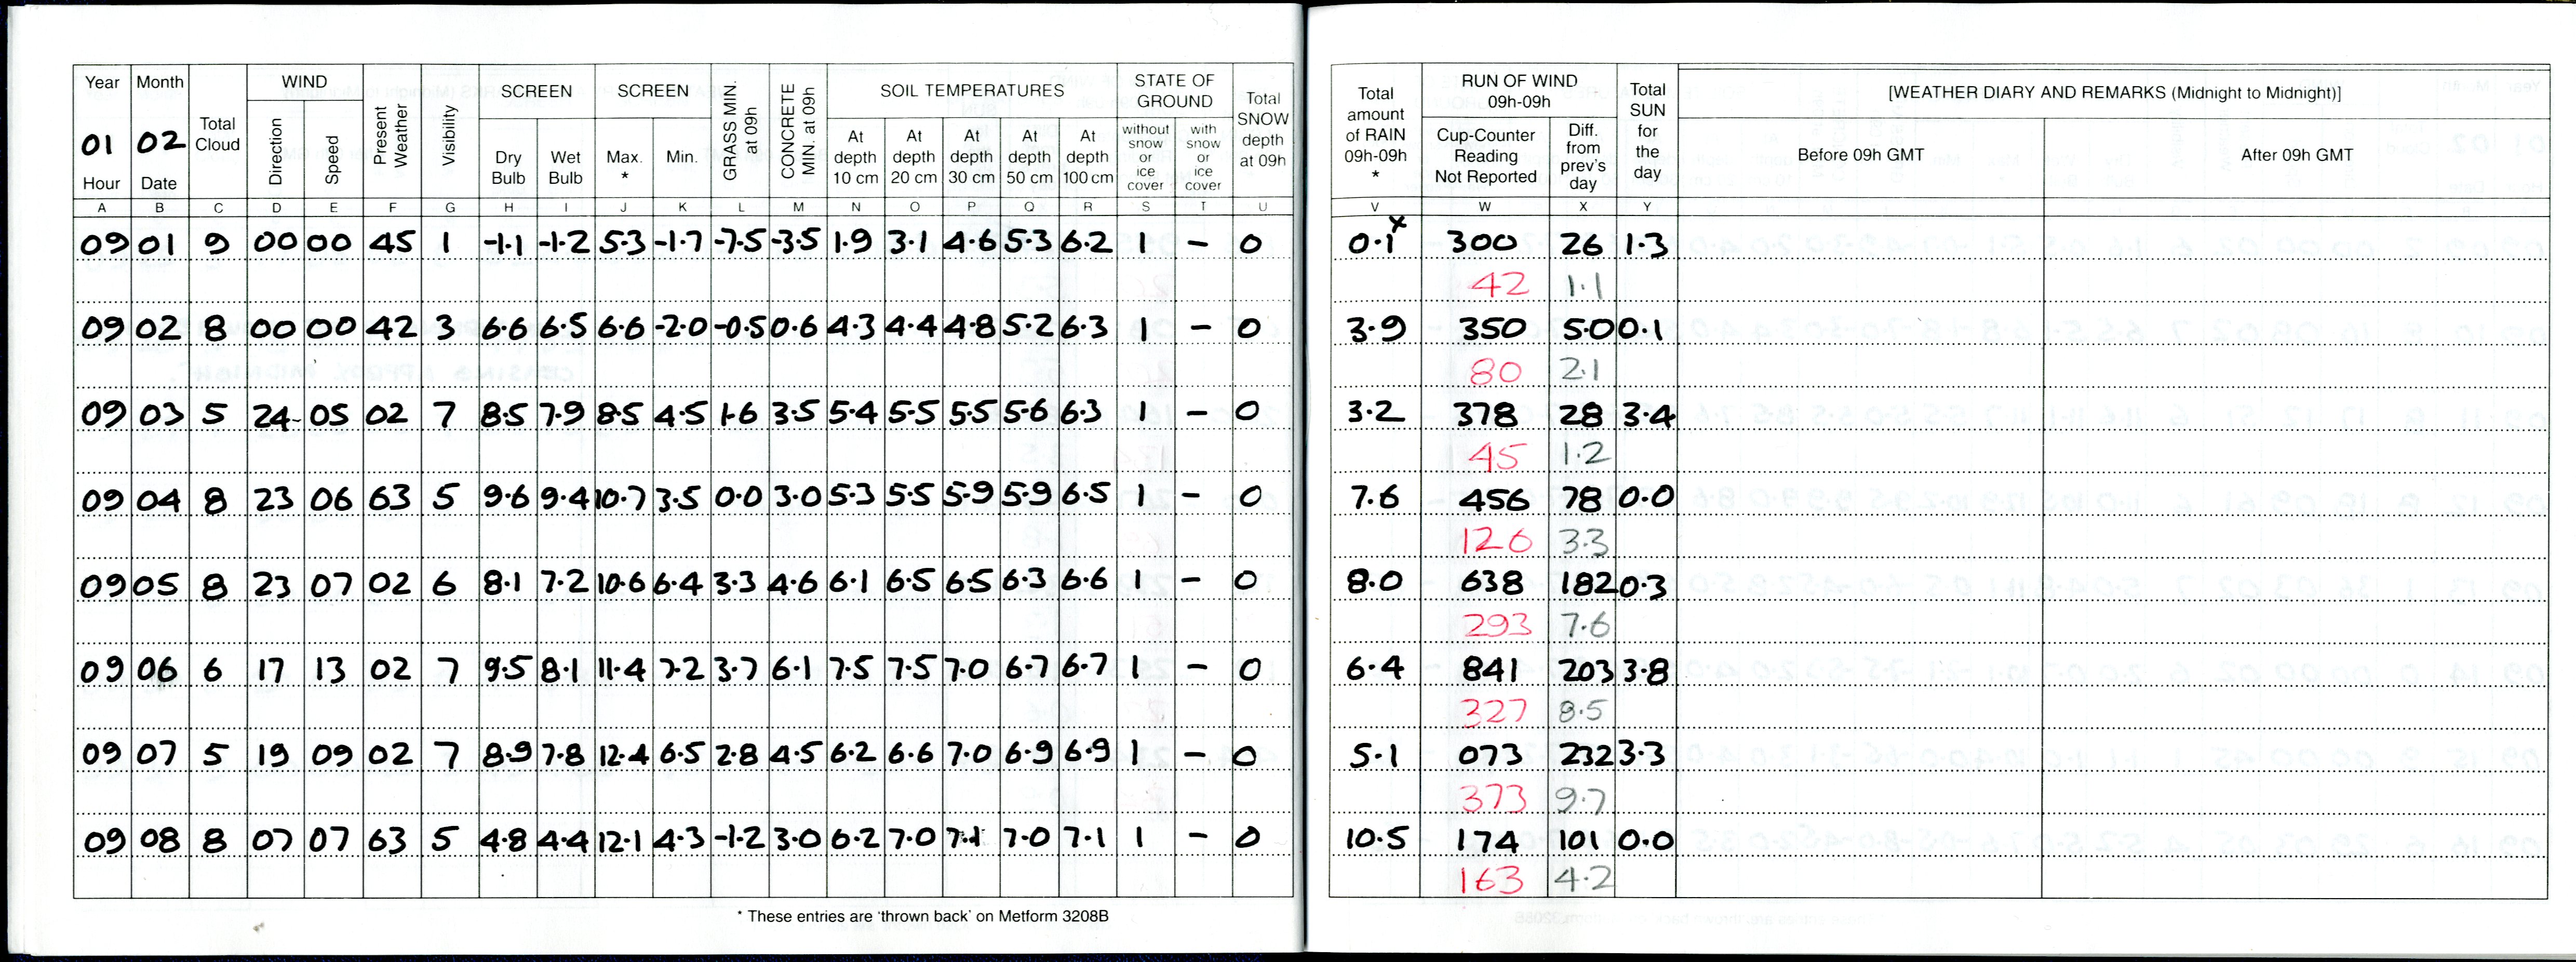 Year Month Total Cloud WIND Present Weather Visibility SCREEN SCREEN GRASS MIN. at 09h CONCRETE MIN. at 09h SOIL TEMPERATURES STATE OF GROUND Total SNOW depth at 09h Total amount of RAIN 09h-09h * RUN OF WIND 09h-09h Total SUN for the day [WEATHER DIARY AND REMARKS (Midnight to Midnight)]
01 02 Direction Speed Dry Bulb Wet Bulb Max. * Min. At depth 10 cm At depth 20 cm At depth 30 cm At depth 50 cm At depth 100 cm without snow or ice cover with snow or ice cover Cup-Counter Reading Not Reported Diff. from prev's day Before 09h GMT After 09h GMT
Hour Date
A B C D E F G H I J K L M N O P Q R S T U V W X Y
09 01 9 00 00 45 1 -1.1 -1.2 5.3 -1.7 -7.5 -3.5 1.9 3.1 4.6 5.3 6.2 1 - 0 0.1 x 300 26 1.3
42 1.1
09 02 8 00 00 42 3 6.6 6.5 6.6 -2.0 -0.5 0.6 4.3 4.4 4.8 5.2 6.3 1 - 0 3.9 350 50 0.1
80 2.1
09 03 5 24 05 02 7 8.5 7.9 8.5 4.5 1.6 3.5 5.4 5.5 5.5 5.6 6.3 1 - 0 3.2 378 28 3.4
45 1.2
09 04 8 23 06 63 5 9.6 9.4 10.7 3.5 0.0 3.0 5.3 5.5 5.9 5.9 6.5 1 - 0 7.6 456 78 0.0
126 3.3
09 05 8 23 07 02 6 8.1 7.2 10.6 6.4 3.3 4.6 6.1 6.5 6.5 6.3 6.6 1 - 0 8.0 638 182 0.3
293 7.6
09 06 6 17 13 02 7 9.5 8.1 11.4 7.2 3.7 6.1 7.5 7.5 7.0 6.7 6.7 1 - 0 6.4 841 203 3.8
327 8.5
09 07 5 19 09 02 7 8.9 7.8 12.4 6.5 2.8 4.5 6.2 6.6 7.0 6.9 6.9 1 - 0 5.1 073 232 3.3
373 9.7
09 08 8 07 07 63 5 4.8 4.4 12.1 4.3 -1.2 3.0 6.2 7.0 7.1 7.0 7.1 1 - 0 10.5 174 101 0.0
163 4.2
* These entries are 'thrown back' on Metform 3208B